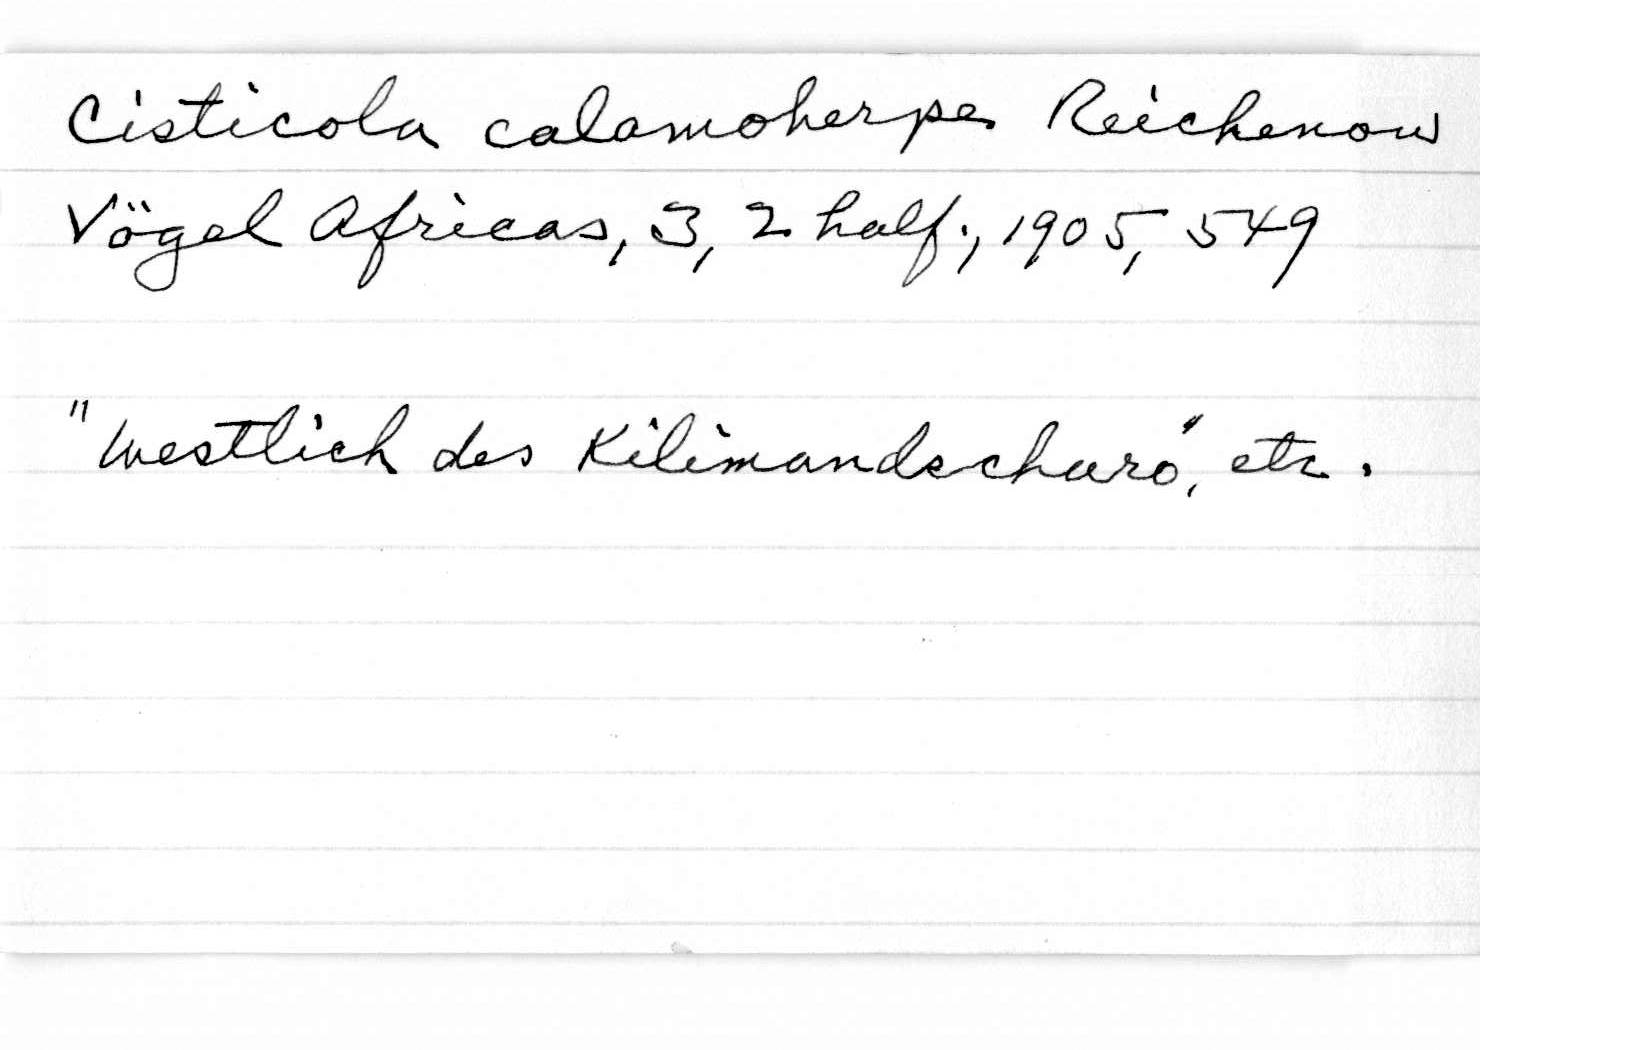 Cisticola calamoherpe Reichenow
Vögel Africas, 3, 2 half., 1905, 549
"Westlich des Kilimandscharo", etc.